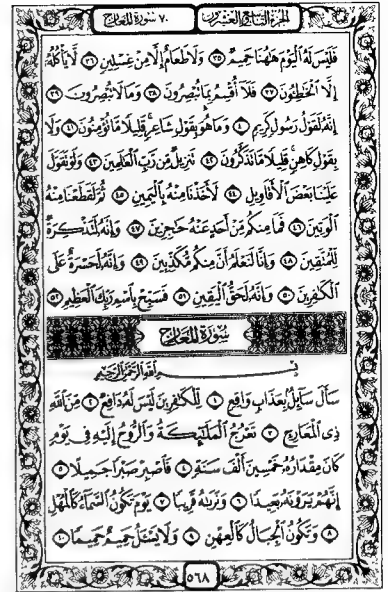 الجزء التاسع والعشرون ٧٠ سورة المعارج
فَلَيْسَ لَهُ ٱلْيَوْمَ هَٰهُنَا حَمِيمٌ ٣٥ وَلَا طَعَامٌ إِلَّا مِنْ غِسْلِينٍ ٣٦ لَّا يَأْكُلُهُۥٓ
إِلَّا ٱلْخَٰطِـُٔونَ ٣٧ فَلَآ أُقْسِمُ بِمَا تُبْصِرُونَ ٣٨ وَمَا لَا تُبْصِرُونَ ٣٩
إِنَّهُۥ لَقَوْلُ رَسُولٍ كَرِيمٍ ٤٠ وَمَا هُوَ بِقَوْلِ شَاعِرٍ قَلِيلًا مَّا تُؤْمِنُونَ ٤١ وَلَا
بِقَوْلِ كَاهِنٍ قَلِيلًا مَّا تَذَكَّرُونَ ٤٢ تَنزِيلٌ مِّن رَّبِّ ٱلْعَٰلَمِينَ ٤٣ وَلَوْ تَقَوَّلَ
عَلَيْنَا بَعْضَ ٱلْأَقَاوِيلِ ٤٤ لَأَخَذْنَا مِنْهُ بِٱلْيَمِينِ ٤٥ ثُمَّ لَقَطَعْنَا مِنْهُ
ٱلْوَتِينَ ٤٦ فَمَا مِنكُم مِّنْ أَحَدٍ عَنْهُ حَٰجِزِينَ ٤٧ وَإِنَّهُۥ لَتَذْكِرَةٌ
لِّلْمُتَّقِينَ ٤٨ وَإِنَّا لَنَعْلَمُ أَنَّ مِنكُم مُّكَذِّبِينَ ٤٩ وَإِنَّهُۥ لَحَسْرَةٌ عَلَى
ٱلْكَٰفِرِينَ ٥٠ وَإِنَّهُۥ لَحَقُّ ٱلْيَقِينِ ٥١ فَسَبِّحْ بِٱسْمِ رَبِّكَ ٱلْعَظِيمِ ٥٢
سُورَةُ المَعَارِج
بِسْمِ ٱللَّهِ ٱلرَّحْمَٰنِ ٱلرَّحِيمِ
سَأَلَ سَآئِلٌۢ بِعَذَابٍ وَاقِعٍ ١ لِّلْكَٰفِرِينَ لَيْسَ لَهُۥ دَافِعٌ ٢ مِّنَ ٱللَّهِ
ذِى ٱلْمَعَارِجِ ٣ تَعْرُجُ ٱلْمَلَٰٓئِكَةُ وَٱلرُّوحُ إِلَيْهِ فِى يَوْمٍ
كَانَ مِقْدَارُهُۥ خَمْسِينَ أَلْفَ سَنَةٍ ٤ فَٱصْبِرْ صَبْرًا جَمِيلًا ٥
إِنَّهُمْ يَرَوْنَهُۥ بَعِيدًا ٦ وَنَرَىٰهُ قَرِيبًا ٧ يَوْمَ تَكُونُ ٱلسَّمَآءُ كَٱلْمُهْلِ
٨ وَتَكُونُ ٱلْجِبَالُ كَٱلْعِهْنِ ٩ وَلَا يَسْـَٔلُ حَمِيمٌ حَمِيمًا ١٠
٥٦٨